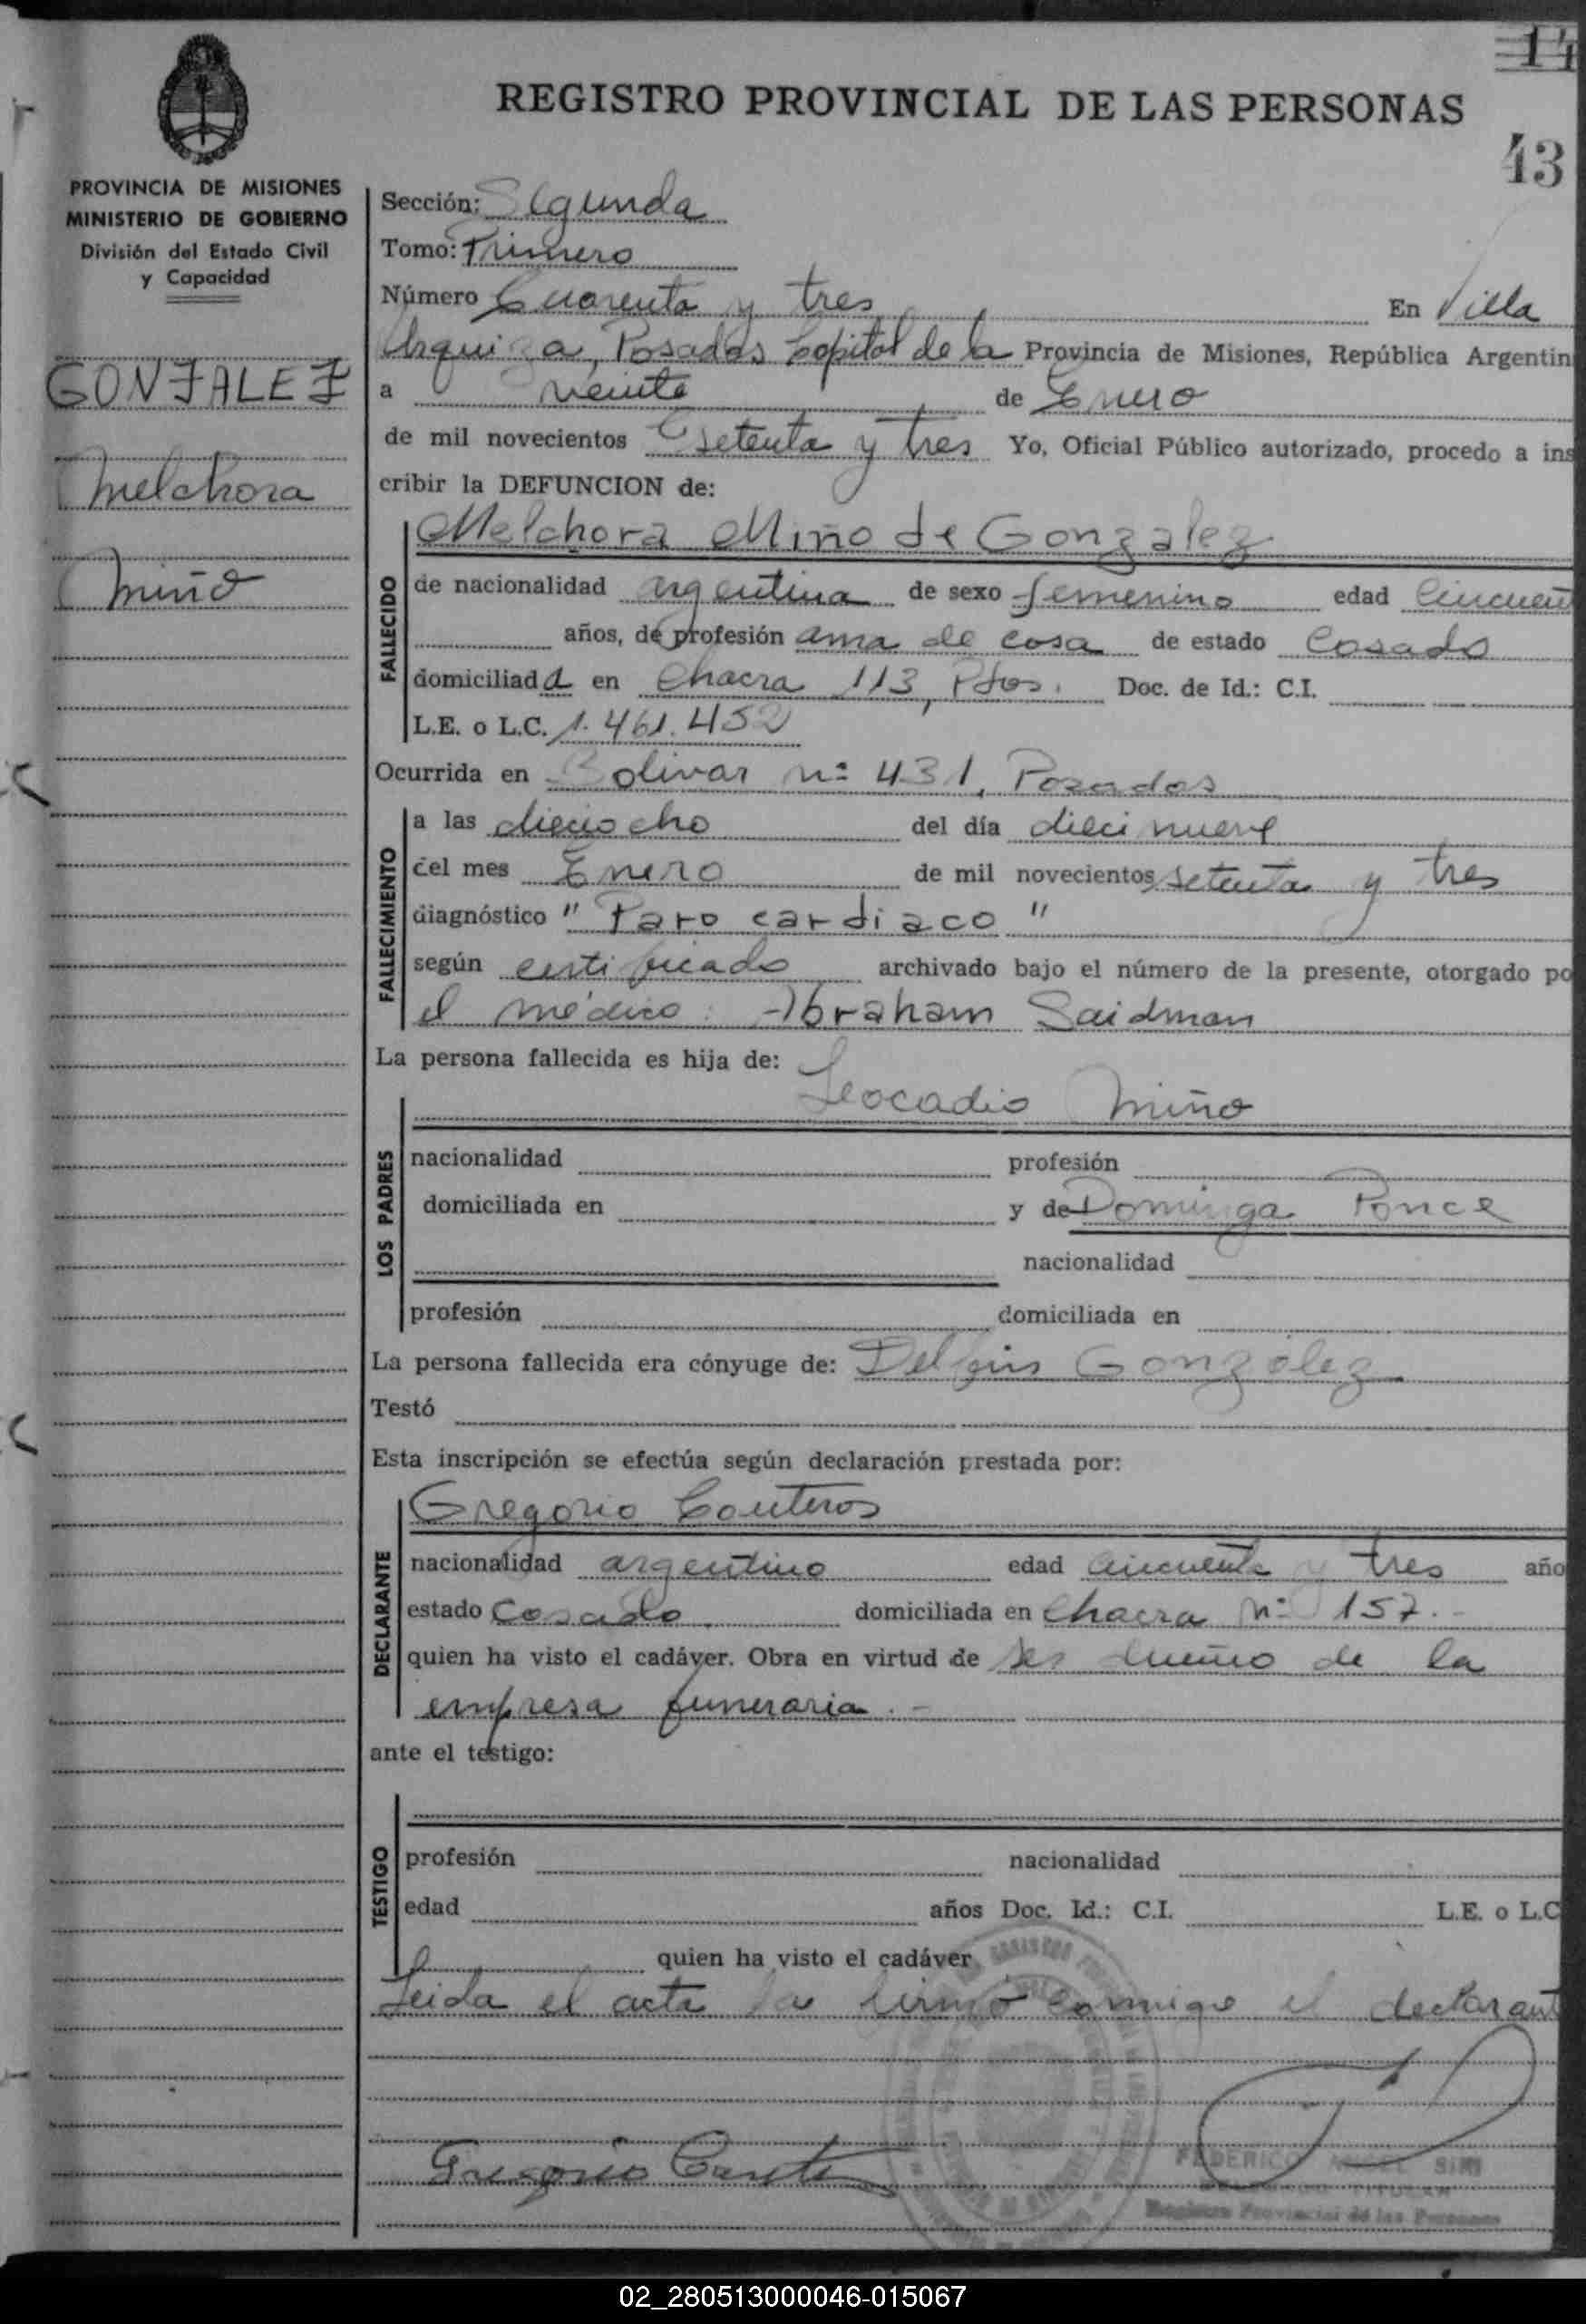 14
REGISTRO PROVINCIAL DE LAS PERSONAS
43
PROVINCIA DE MISIONES
MINISTERIO DE GOBIERNO
División del Estado Civil
y Capacidad
GONZALEZ
Melchora
Miño
Sección: Segunda
Tomo: Primero
Número Cuarenta y tres En Villa
Urquiza, Posadas Capital de la Provincia de Misiones, República Argentin
a veinte de Enero
de mil novecientos setenta y tres Yo, Oficial Público autorizado, procedo a ins
cribir la DEFUNCION de:
Melchora Miño de Gonzalez
FALLECIDO
de nacionalidad argentina de sexo femenino edad cincuent
años, de profesión ama de casa de estado Casada
domiciliada en Chacra 113, Pdas. Doc. de Id.: C.I.
L.E. o L.C. 1.461.452
Ocurrida en Bolivar nº 431, Posadas
FALLECIMIENTO
a las dieciocho del día diecinueve
del mes Enero de mil novecientos setenta y tres
diagnóstico "Paro cardiaco"
según certificado archivado bajo el número de la presente, otorgado po
el médico: Abraham Saidman
La persona fallecida es hija de:
Leocadio Miño
LOS PADRES
nacionalidad profesión
domiciliada en y de Dominga Ponce
nacionalidad
profesión domiciliada en
La persona fallecida era cónyuge de: Delfin González
Testó
Esta inscripción se efectúa según declaración prestada por:
Gregorio Conteros
DECLARANTE
nacionalidad argentino edad cincuenta y tres año
estado Casado domiciliada en Chacra nº 157.-
quien ha visto el cadáver. Obra en virtud de ser dueño de la
empresa funeraria.-
ante el testigo:
TESTIGO
profesión nacionalidad
edad años Doc. Id.: C.I. L.E. o L.C
quien ha visto el cadáver
Leida el acta la firmó conmigo el declarant
Gregorio
FEDERICO SIRI
TITULAR
Registro Provincial de las Personas
02_280513000046-015067